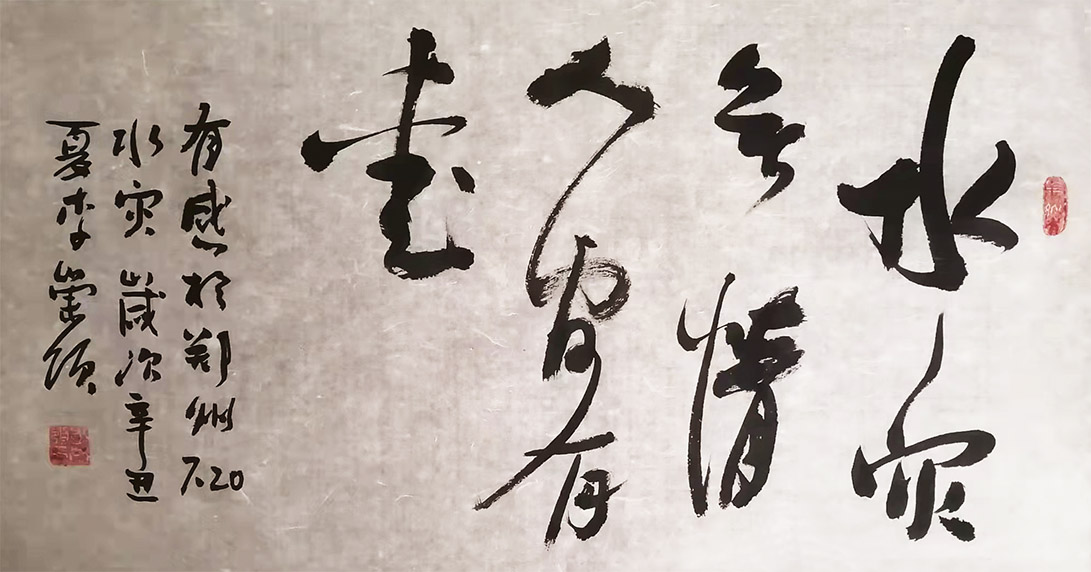 水灾
无情
人间有
爱
有感於郑州7.20
水灾歲次辛丑
夏李